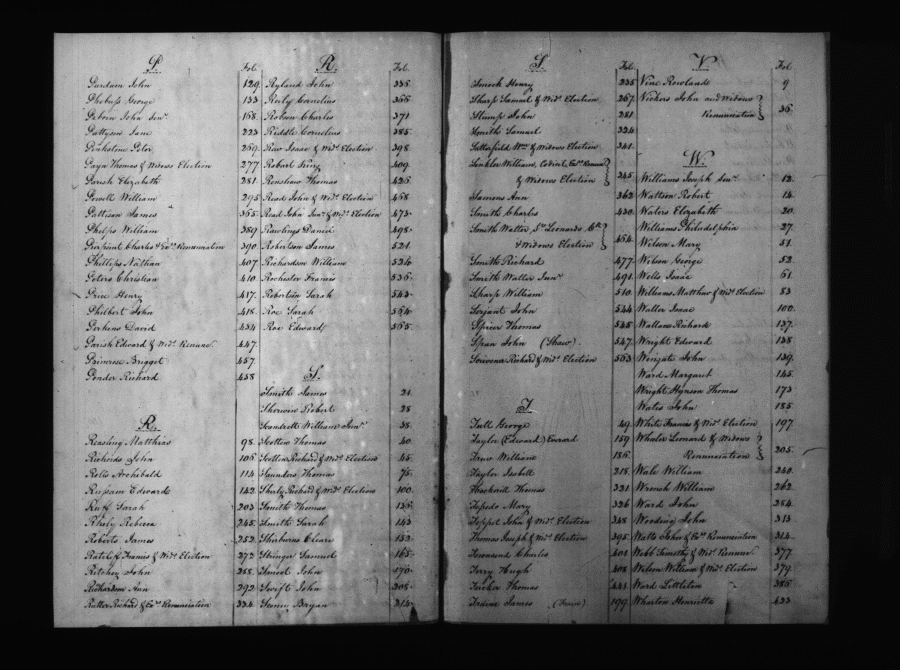 P.
Fol.
Pardum John 129
Phebuss George 133
Osborn John Senr. 168
Pattyson Jane 223
Penkstone Peter 269
Payn Thomas & Widows Election 277
Parish Elizabeth 281
Powell William 295
Pattison James 365
Phelps William 389
Pierpoint Charles & Exrs. Renunciation 390
Phillips Nathan 407
Peters Christian 410
Price Henry 417
Philbert John 418
Perkins David 434
Parish Edward & Wids. Renunc. 447
Primrose Brigget 457
Ponder Richard 458
R.
Reasling Matthias 98
Richards John 106
Rolls Archibald 114
Russam Edward 142
Ruff Sarah 203
Rhaly Rebecca 248
Roberts James 252
Ratcliff Francis & Wids. Election 272
Ritchey John 288
Richardson Ann 292
Rutter Richard & Exrs. Renunciation 334
R.
Fol.
Ryland John 335
Reily Cornelius 366
Robson Charles 371
Riddle Cornelius 385
Rice Isaac & Wids. Election 398
Robert King 409
Renshaw Thomas 426
Read John & Wids. Election 468
Read John Junr. & Wids. Election 473
Rawlings Daniel 498
Robertson James 521
Richardson William 524
Rochester Francis 536
Robertson Sarah 543
Roe Sarah 564
Roe Edward 565
S.
Smith James 21
Sherwin Robert 28
William Senr. 38
Scotton Thomas 40
Scotton Richard & Wids. Election 45
Saunders Thomas 75
Sherly Richard & Wids. Election 100
Smith Thomas 135
Smith Sarah 143
Sherburne Cleare 153
Stringer Samuel 165
Smoot John 170
Swift John 208
Seeney Bryan 314
S.
Fol.
Smock Henry 235
Sharp Samuel & Wids. Election 267
Slump John 281
Smith Samuel 334
Satterfield Wm. & Widows Election 341
William,
& Widows Election 345
Simmons Ann 362
Smith Charles 430
Smith Walter, St. Leonards Ck.
& Widows Election 454
Smith Richard 477
Smith Walter Junr. 491
Sharp William 510
Serjant John 544
Spicer Thomas 545
Span John (Shaw) 547
Richard & Wids. Election 563
T.
Tall George 49
Taylor (Edward) Everard 159
Trew William 186
Taylor Isabell 218
Thomas 321
Mary 326
Teppet John & Wids. Election 348
Thomas Joseph & Wids. Election 395
Townsend Charles 401
Terry Hugh 408
Thomas 441
James 199
V.
Fol.
Vine Rowland 9
Vickers John and Widows
Renunciation 36
W.
Williams Joseph Senr. 12
Wattson Robert 14
Waters Elizabeth 20
Williams Philadelphia 27
Wilson Mary 51
Wilson George 52
Wells Isaac 61
Williams Matthew & Wids. Election 83
Waller Isaac 100
Wallace Richard 137
Wright Edward 138
Wingate John 139
Ward Margaret 145
Wright Hynson Thomas 173
Wates John 185
White Francis & Wids. Election 197
Whaler Leonard & Widows
Renunciation 205
Wale William 240
Wrench William 262
Ward John 284
Wooding John 313
Watts John & Exrs. Renunciation 314
Webb Timothy & Wids. Renunc. 377
Wilson William & Wids. Election 379
Ward Littleton 386
Wharton Henrietta 433